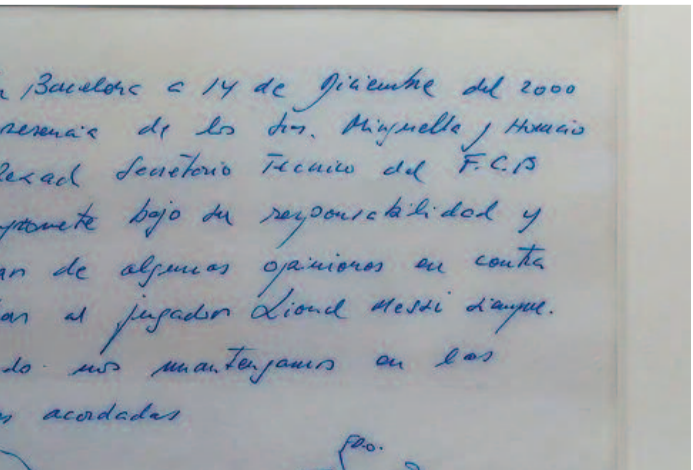 n Barcelona a 14 de Diciembre del 2000
resencia de los Srs. Minguella y Horacio
Rexad Secretario Tecnico del F.C.B
promete bajo su responsabilidad y
ar de algunas opiniones en contra
ar al jugador Lionel Messi siempre.
do nos mantengamos en las
s acordadas
FDO.